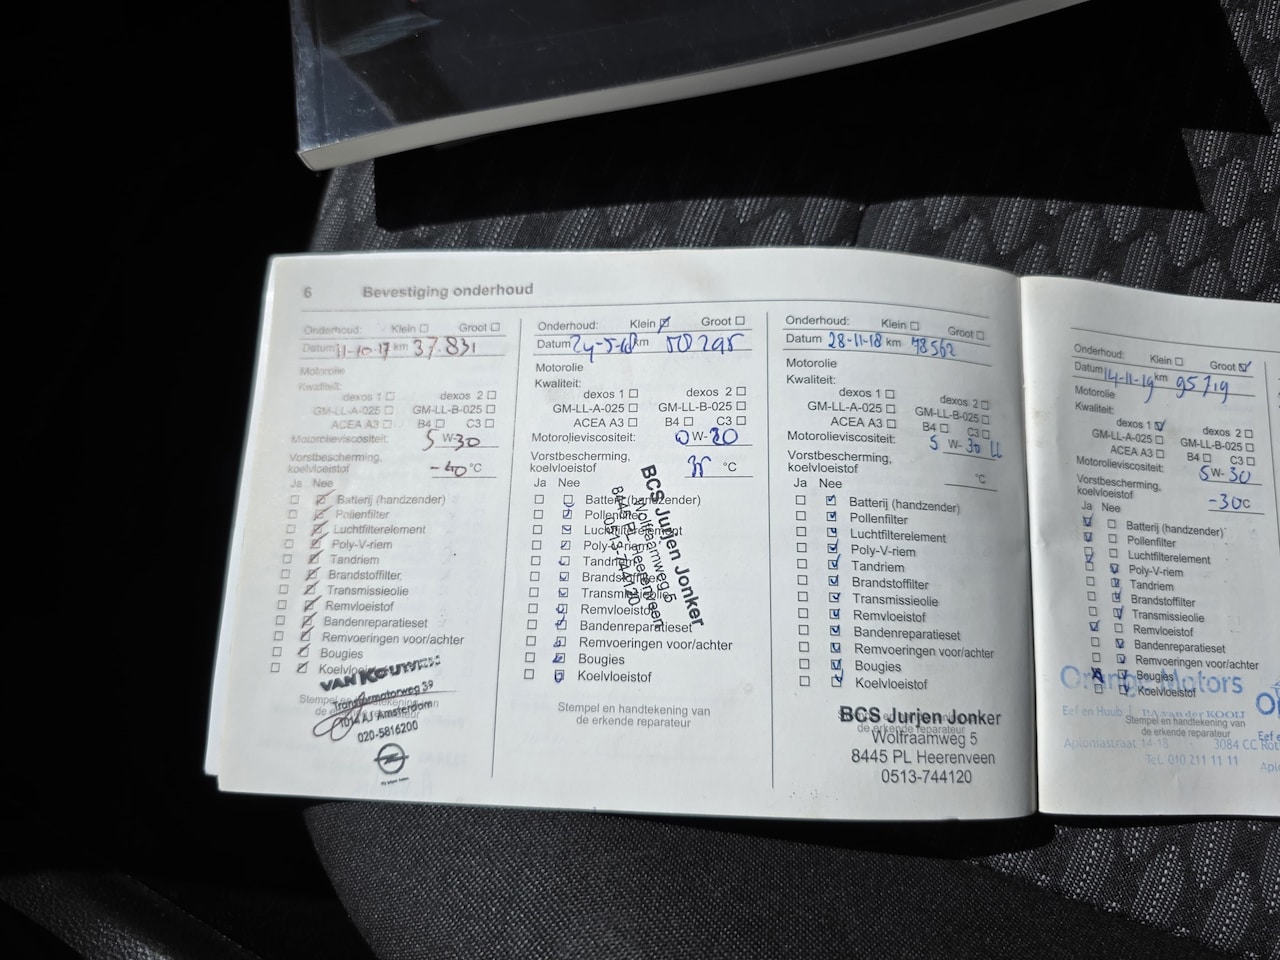 6 Bevestiging onderhoud
Onderhoud: Klein Groot
Datum 11-10-17 km 37.831
Motorolie
Kwaliteit:
dexos 1 dexos 2
GM-LL-A-025 GM-LL-B-025
ACEA A3 B4 C3
Motorolieviscositeit: 5 W-30
Vorstbescherming,
koelvloeistof -40 °C
Ja Nee
Batterij (handzender)
Pollenfilter
Luchtfilterelement
Poly-V-riem
Tandriem
Brandstoffilter
Transmissieolie
Remvloeistof
Bandenreparatieset
Remvoeringen voor/achter
Bougies
Koelvloeistof
VAN KOUWEN
Transformatorweg 39
1014 AJ Amsterdam
020-5816200
Stempel en handtekening van
de erkende reparateur
Onderhoud: Klein Groot
Datum 24-5-18 km 50295
Motorolie
Kwaliteit:
dexos 1 dexos 2
GM-LL-A-025 GM-LL-B-025
ACEA A3 B4 C3
Motorolieviscositeit: 0 W-20
Vorstbescherming,
koelvloeistof 35 °C
Ja Nee
Batterij (handzender)
Pollenfilter
Luchtfilterelement
Poly-V-riem
Tandriem
Brandstoffilter
Transmissieolie
Remvloeistof
Bandenreparatieset
Remvoeringen voor/achter
Bougies
Koelvloeistof
BCS Jurjen Jonker
Wolfraamweg 5
8445 PL Heerenveen
0513-744120
Stempel en handtekening van
de erkende reparateur
Onderhoud: Klein Groot
Datum 28-11-18 km 78562
Motorolie
Kwaliteit:
dexos 1 dexos 2
GM-LL-A-025 GM-LL-B-025
ACEA A3 B4 C3
Motorolieviscositeit: 5 W-30 LL
Vorstbescherming,
koelvloeistof °C
Ja Nee
Batterij (handzender)
Pollenfilter
Luchtfilterelement
Poly-V-riem
Tandriem
Brandstoffilter
Transmissieolie
Remvloeistof
Bandenreparatieset
Remvoeringen voor/achter
Bougies
Koelvloeistof
Stempel en handtekening van
de erkende reparateur
BCS Jurjen Jonker
Wolfraamweg 5
8445 PL Heerenveen
0513-744120
Onderhoud: Klein Groot
Datum 14-11-19 km 95719
Motorolie
Kwaliteit:
dexos 1 dexos 2
GM-LL-A-025 GM-LL-B-025
ACEA A3 B4 C3
Motorolieviscositeit: 5 W-30
Vorstbescherming,
koelvloeistof -30 °C
Ja Nee
Batterij (handzender)
Pollenfilter
Luchtfilterelement
Poly-V-riem
Tandriem
Brandstoffilter
Transmissieolie
Remvloeistof
Bandenreparatieset
Remvoeringen voor/achter
Bougies
Koelvloeistof
Orange Motors
Eef en Huub van der KOOIJ
Stempel en handtekening van
de erkende reparateur
Aploniastraat 14-18 3084 CC Rot
Tel. 010 211 11 11